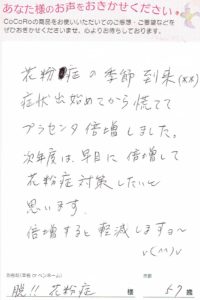 あなた様のお声をおきかせください。
CoCoRoの商品をお使いいただいてのご感想・ご要望などを
ぜひおきかせくださいませ。心よりお待ちしております。
花粉症の季節到来(××)
症状出始めてから慌てて
プラセンタ倍増しました。
次年度は、早目に倍増して
花粉症対策したいと
思います。
倍増すると軽減しますョ〜
v(^^)v
お名前(本名 or ペンネーム) 年齢
脱!! 花粉症 様 57歳